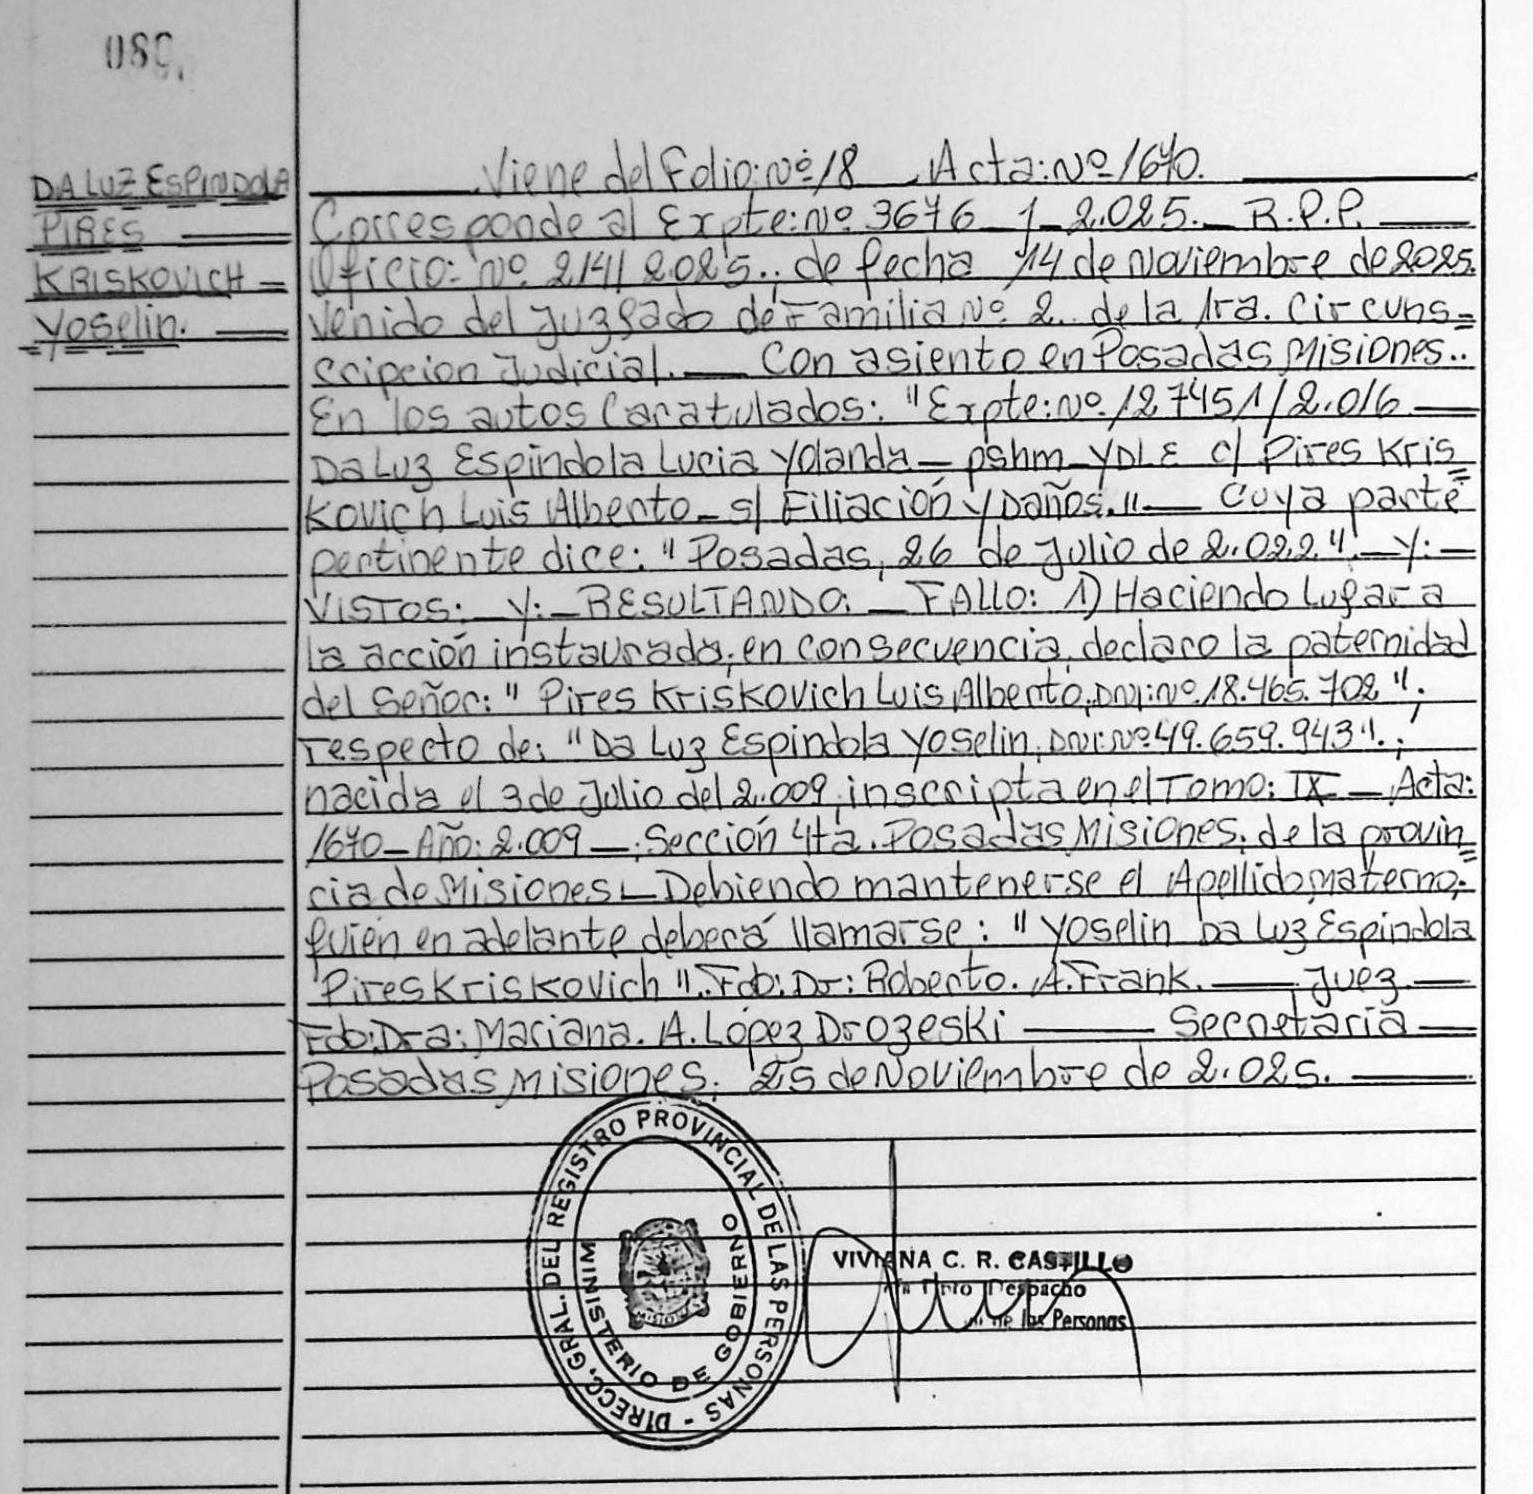 089
DA LUZ ESPINDOLA
PIRES
KRISKOVICH
Yoselin.
Viene del Folio: Nº 18 Acta: Nº 1670.
Corresponde al Expte: Nº 3676 1 2.025. R.P.P.
Oficio: Nº 2141 2.025., de fecha 14 de Noviembre de 2025.
Venido del Juzgado de Familia Nº 2. de la 1ra. Circuns=
cripcion Judicial. Con asiento en Posadas Misiones..
En los autos Caratulados: "Expte: Nº 127451/2.016
Da Luz Espindola Lucia Yolanda - pshm - YDLE c/ Pires Kris=
Kovich Luis Alberto - s/ Filiación y Daños." Cuya parte
pertinente dice: "Posadas, 26 de Julio de 2.022". Y:
VISTOS: Y: RESULTANDO: FALLO: 1) Haciendo Lugar a
la acción instaurada, en consecuencia, declaro la paternidad
del Señor: "Pires Kriskovich Luis Alberto, DNI: Nº 18.465.702";
respecto de: "Da Luz Espindola Yoselin, DNI: Nº 49.659.943".;
nacida el 3 de Julio del 2.009, inscripta en el Tomo: IX - Acta:
1670 - Año: 2.009 - Sección 4ta. Posadas Misiones, de la provin=
cia de Misiones - Debiendo mantenerse el Apellido materno,
quien en adelante deberá llamarse: "Yoselin Da Luz Espindola
Pires Kriskovich". Fdo: Dr: Roberto. A. Frank. Juez
Fdo: Dra: Mariana. A. López Drozeski Secretaria
Posadas Misiones, 25 de Noviembre de 2.025.
DIRECC. GRAL. DEL REGISTRO PROVINCIAL DE LAS PERSONAS -
MINISTERIO DE GOBIERNO
MISIONES
VIVIANA C. R. CASTILLO
Dpto Despacho
de las Personas